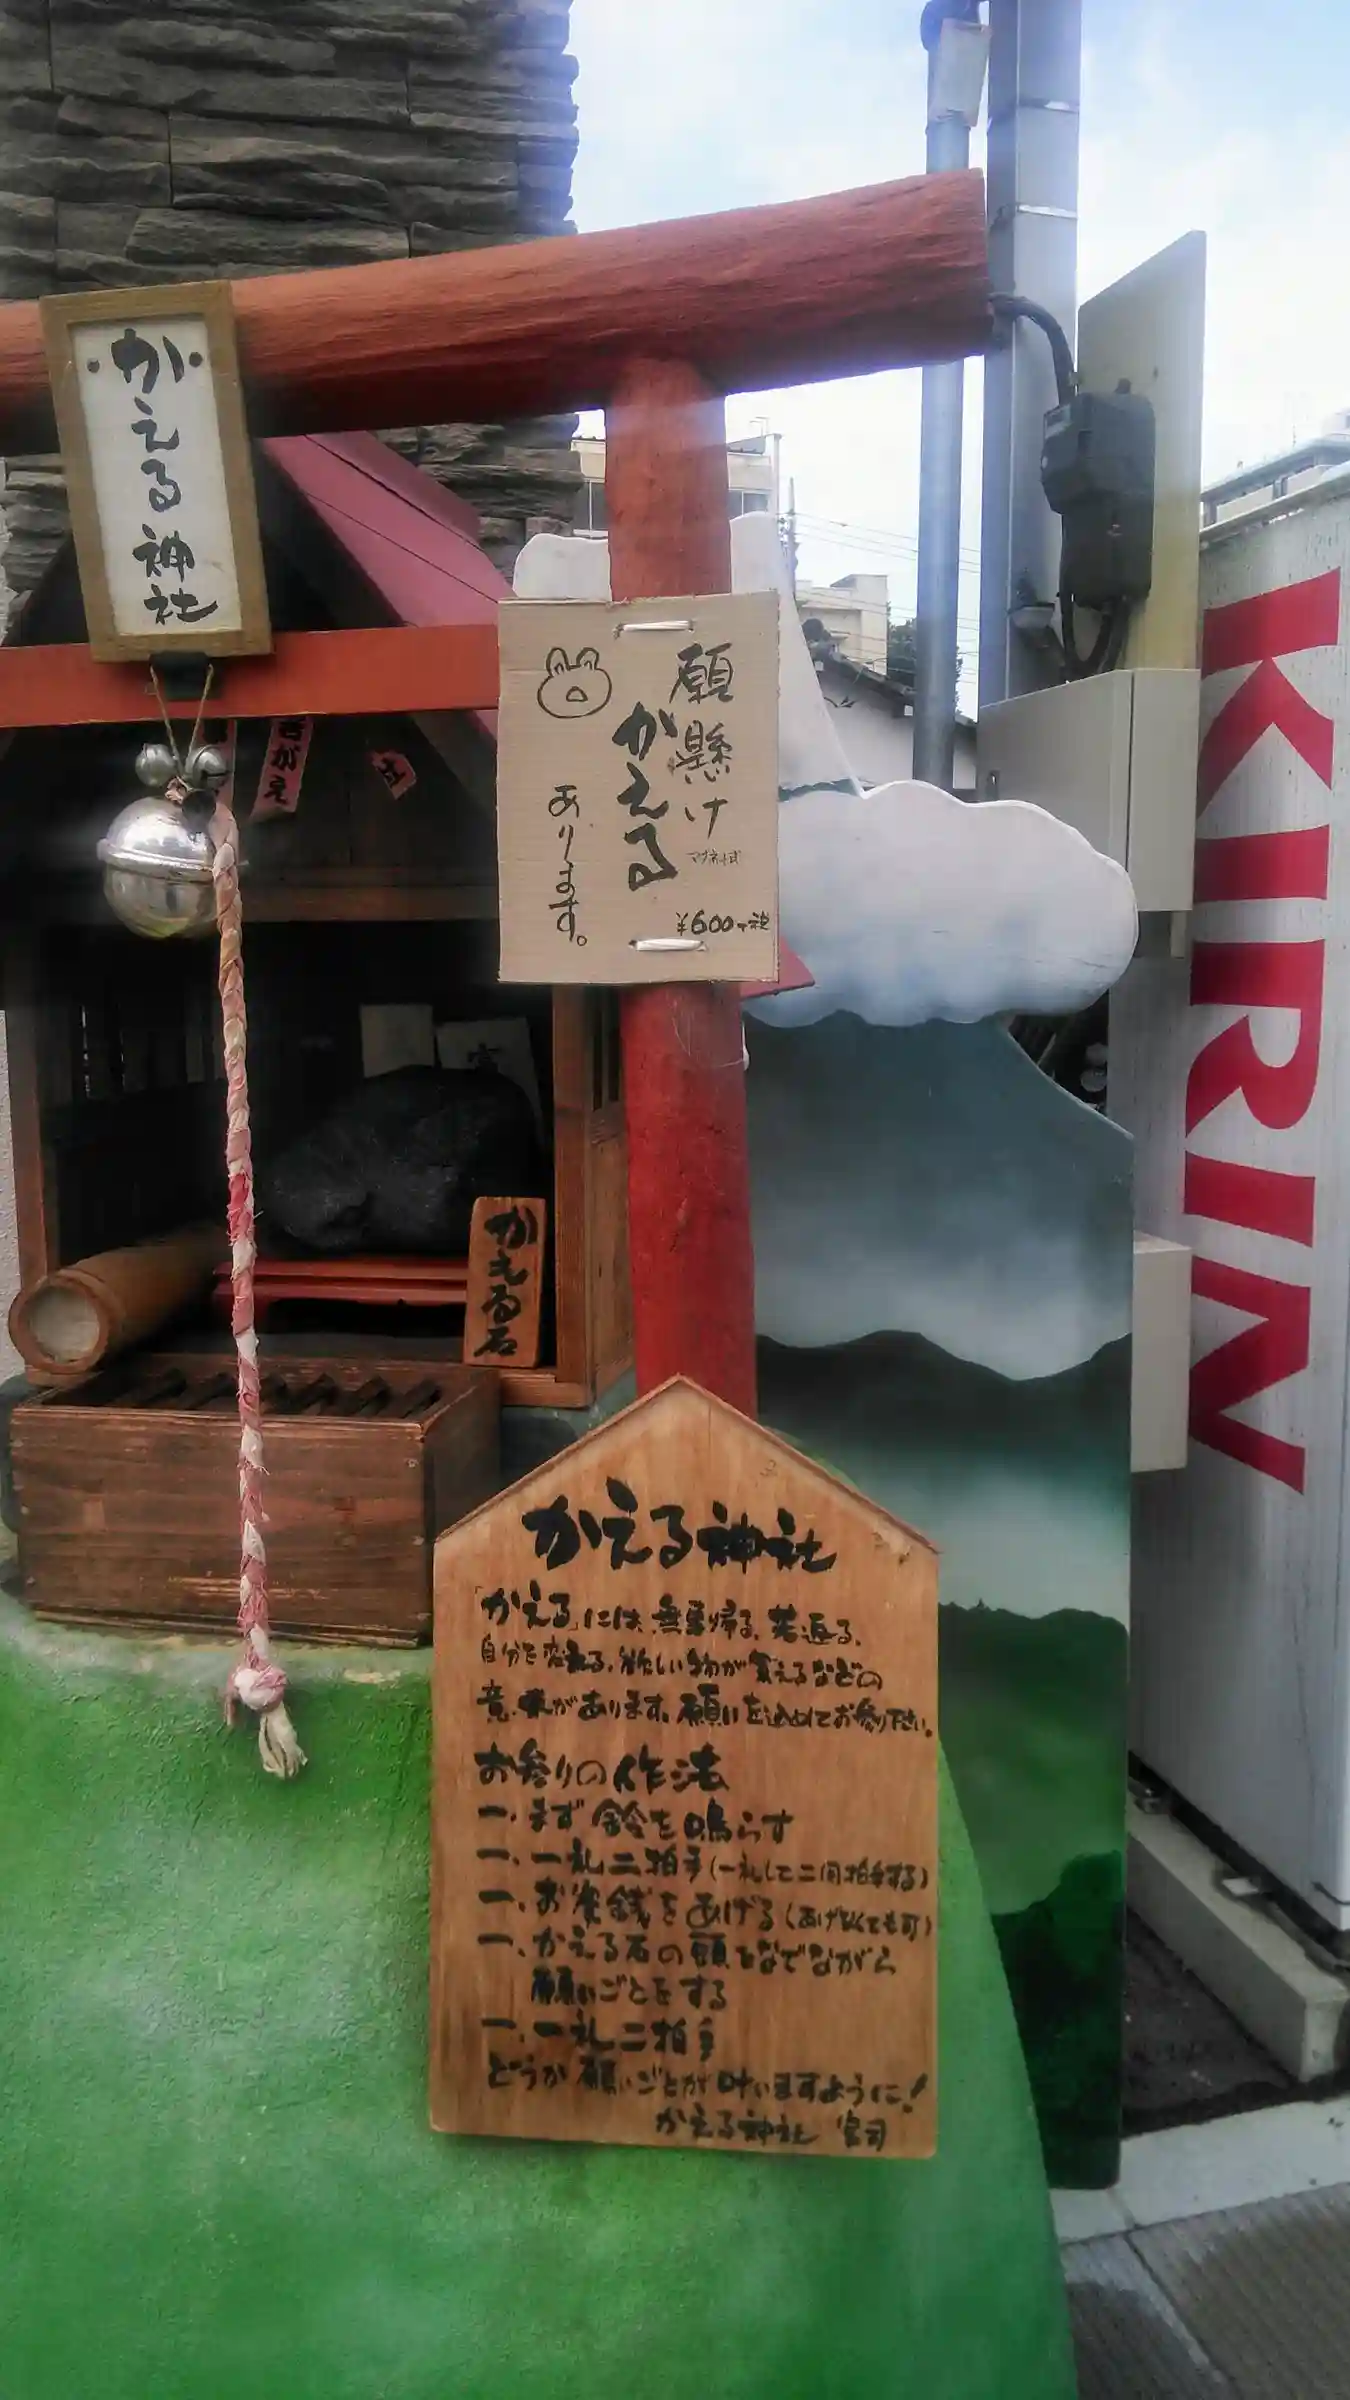 かえる神社
願懸け
かえる
マグネット式
あります。
¥600+税
若がえ
かえる石
KIRIN
かえる神社
「かえる」には、無事帰る、若返る、
自分を変える、欲しい物が買えるなどの
意味があります。願いを込めてお参り下さい。
お参りの作法
一、まず鈴を鳴らす
一、一礼二拍手(一礼して二回拍手する)
一、お賽銭をあげる(あげなくても可)
一、かえる石の頭をなでながら
願いごとをする
一、一礼二拍手
どうか願いごとが叶いますように!
かえる神社 宮司